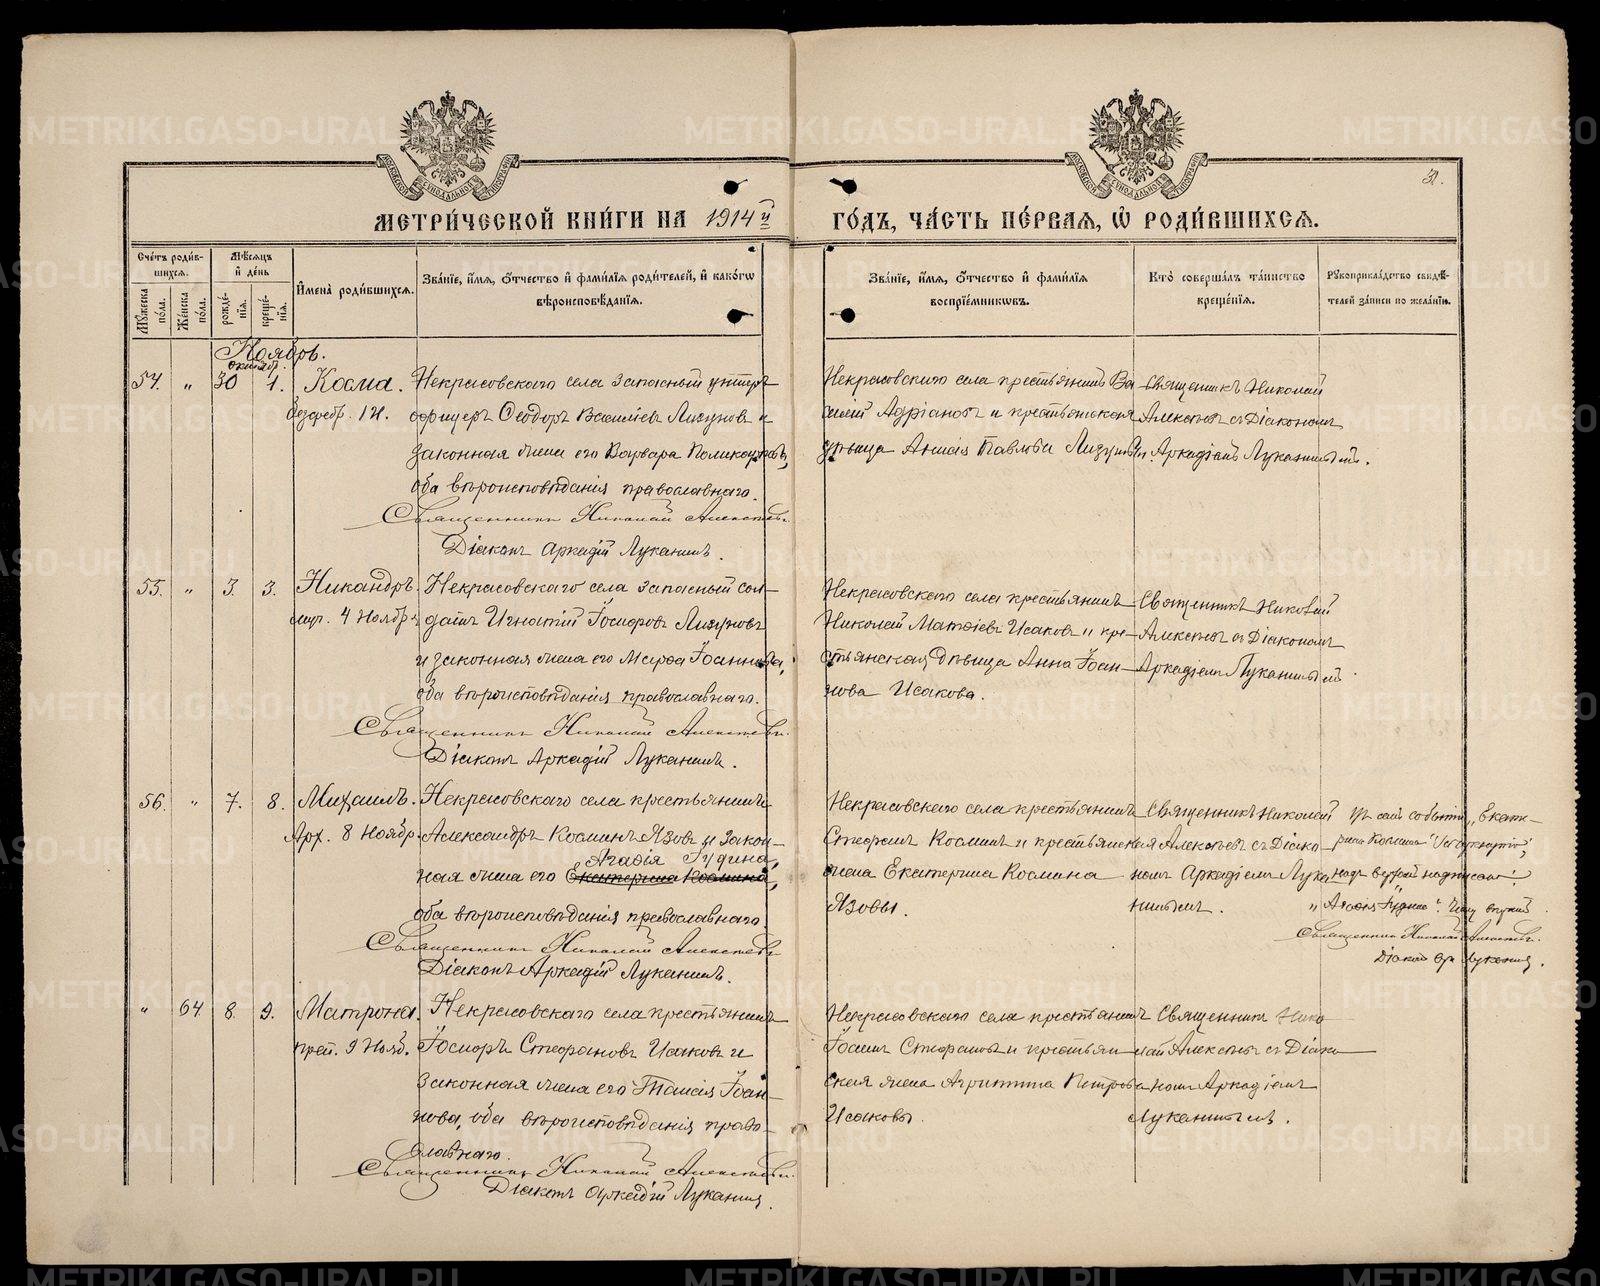 МЕТРИ́ЧЕСКОЙ КНИ́ГИ НА 1914 й ГО́ДЪ, ЧА́СТЬ ПЕ́РВАЯ, Ѡ РОДИ́ВШИХСЯ.
Сче́тъ роди́в-
шихся.
Му́жеска по́ла.
Же́нска по́ла.
Мѣ́сяцъ и де́нь
рожде́-
нія.
креще́-
нія.
И́мена роди́вшихся.
Зва́ніе, и́мя, о́тчество и фами́лія роди́телей, и како́гѡ
вѣроисповѣ́данія.
Зва́ніе, и́мя, о́тчество и фами́лія
воспріе́мниковъ.
Кто̀ соверша́лъ та́инство
креще́нія.
Рукоприкла́дство свидѣ́-
телей за́писи по жела́нію.
Ноябрь.
октябр.
54. " 30 1. Косма.
безсребр. 1 Н.
Некрасовскаго села запасный унтеръ
офицеръ Ѳеодоръ Васильевъ Лизуновъ и
законная жена его Варвара Поликарпова,
оба вѣроисповѣданія православнаго.
Священникъ Николай Алексѣевъ.
Діаконъ Аркадій Луканинъ.
Некрасовскаго села крестьянинъ Ва-
силій Адріановъ и крестьянская
дѣвица Анисія Павлова Лизуновы.
Священникъ Николай
Алексѣевъ съ Діакономъ
Аркадіемъ Луканинымъ.
55. " 3. 3. Никандръ.
4 Ноябр
Некрасовскаго села запасный сол-
датъ Игнатій Іосифовъ Лизуновъ
и законная жена его Марѳа Іоаннова,
оба вѣроисповѣданія православнаго.
Священникъ Николай Алексѣевъ.
Діаконъ Аркадій Луканинъ.
Некрасовскаго села крестьянинъ
Николай Матѳіевъ Исаковъ и кре-
стьянская дѣвица Анна Іоан-
нова Исакова.
Священникъ Николай
Алексѣевъ съ Діакономъ
Аркадіемъ Луканинымъ
56. " 7. 8. Михаилъ.
Арх. 8 Ноябр.
Некрасовскаго села крестьянинъ
Александръ Косминъ Язовъ и закон-
Агаѳія Гудина,
ная жена его Екатерина Космина,
оба вѣроисповѣданія православнаго.
Священникъ Николай Алексѣевъ
Діаконъ Аркадій Луканинъ.
Некрасовскаго села крестьянинъ
Стефанъ Косминъ и крестьянская
жена Екатерина Космина
Язовы.
Священникъ Николай
Алексѣевъ съ Діако-
номъ Аркадіемъ Лука-
нинымъ.
"Екате-
рина Космина"
надъ надписано
"Агаѳія Гудина".
Священникъ Николай Алексѣевъ.
Діаконъ Луканинъ.
" 64 8. 9. Матрона.
преп. 9 Нояб.
Некрасовскаго села крестьянинъ
Іосифъ Стефановъ Исаковъ и
законная жена его Таисія Іоан-
нова, оба вѣроисповѣданія право-
славнаго.
Священникъ Николай Алексѣевъ.
Діаконъ Аркадій Луканинъ.
Некрасовскаго села крестьянинъ
Іоаннъ Стефановъ и крестьян-
ская жена Агриппина Петрова
Исаковы.
Священникъ Нико-
лай Алексѣевъ съ Діако-
номъ Аркадіемъ
Луканинымъ.
METRIKI.GASO-URAL.RU